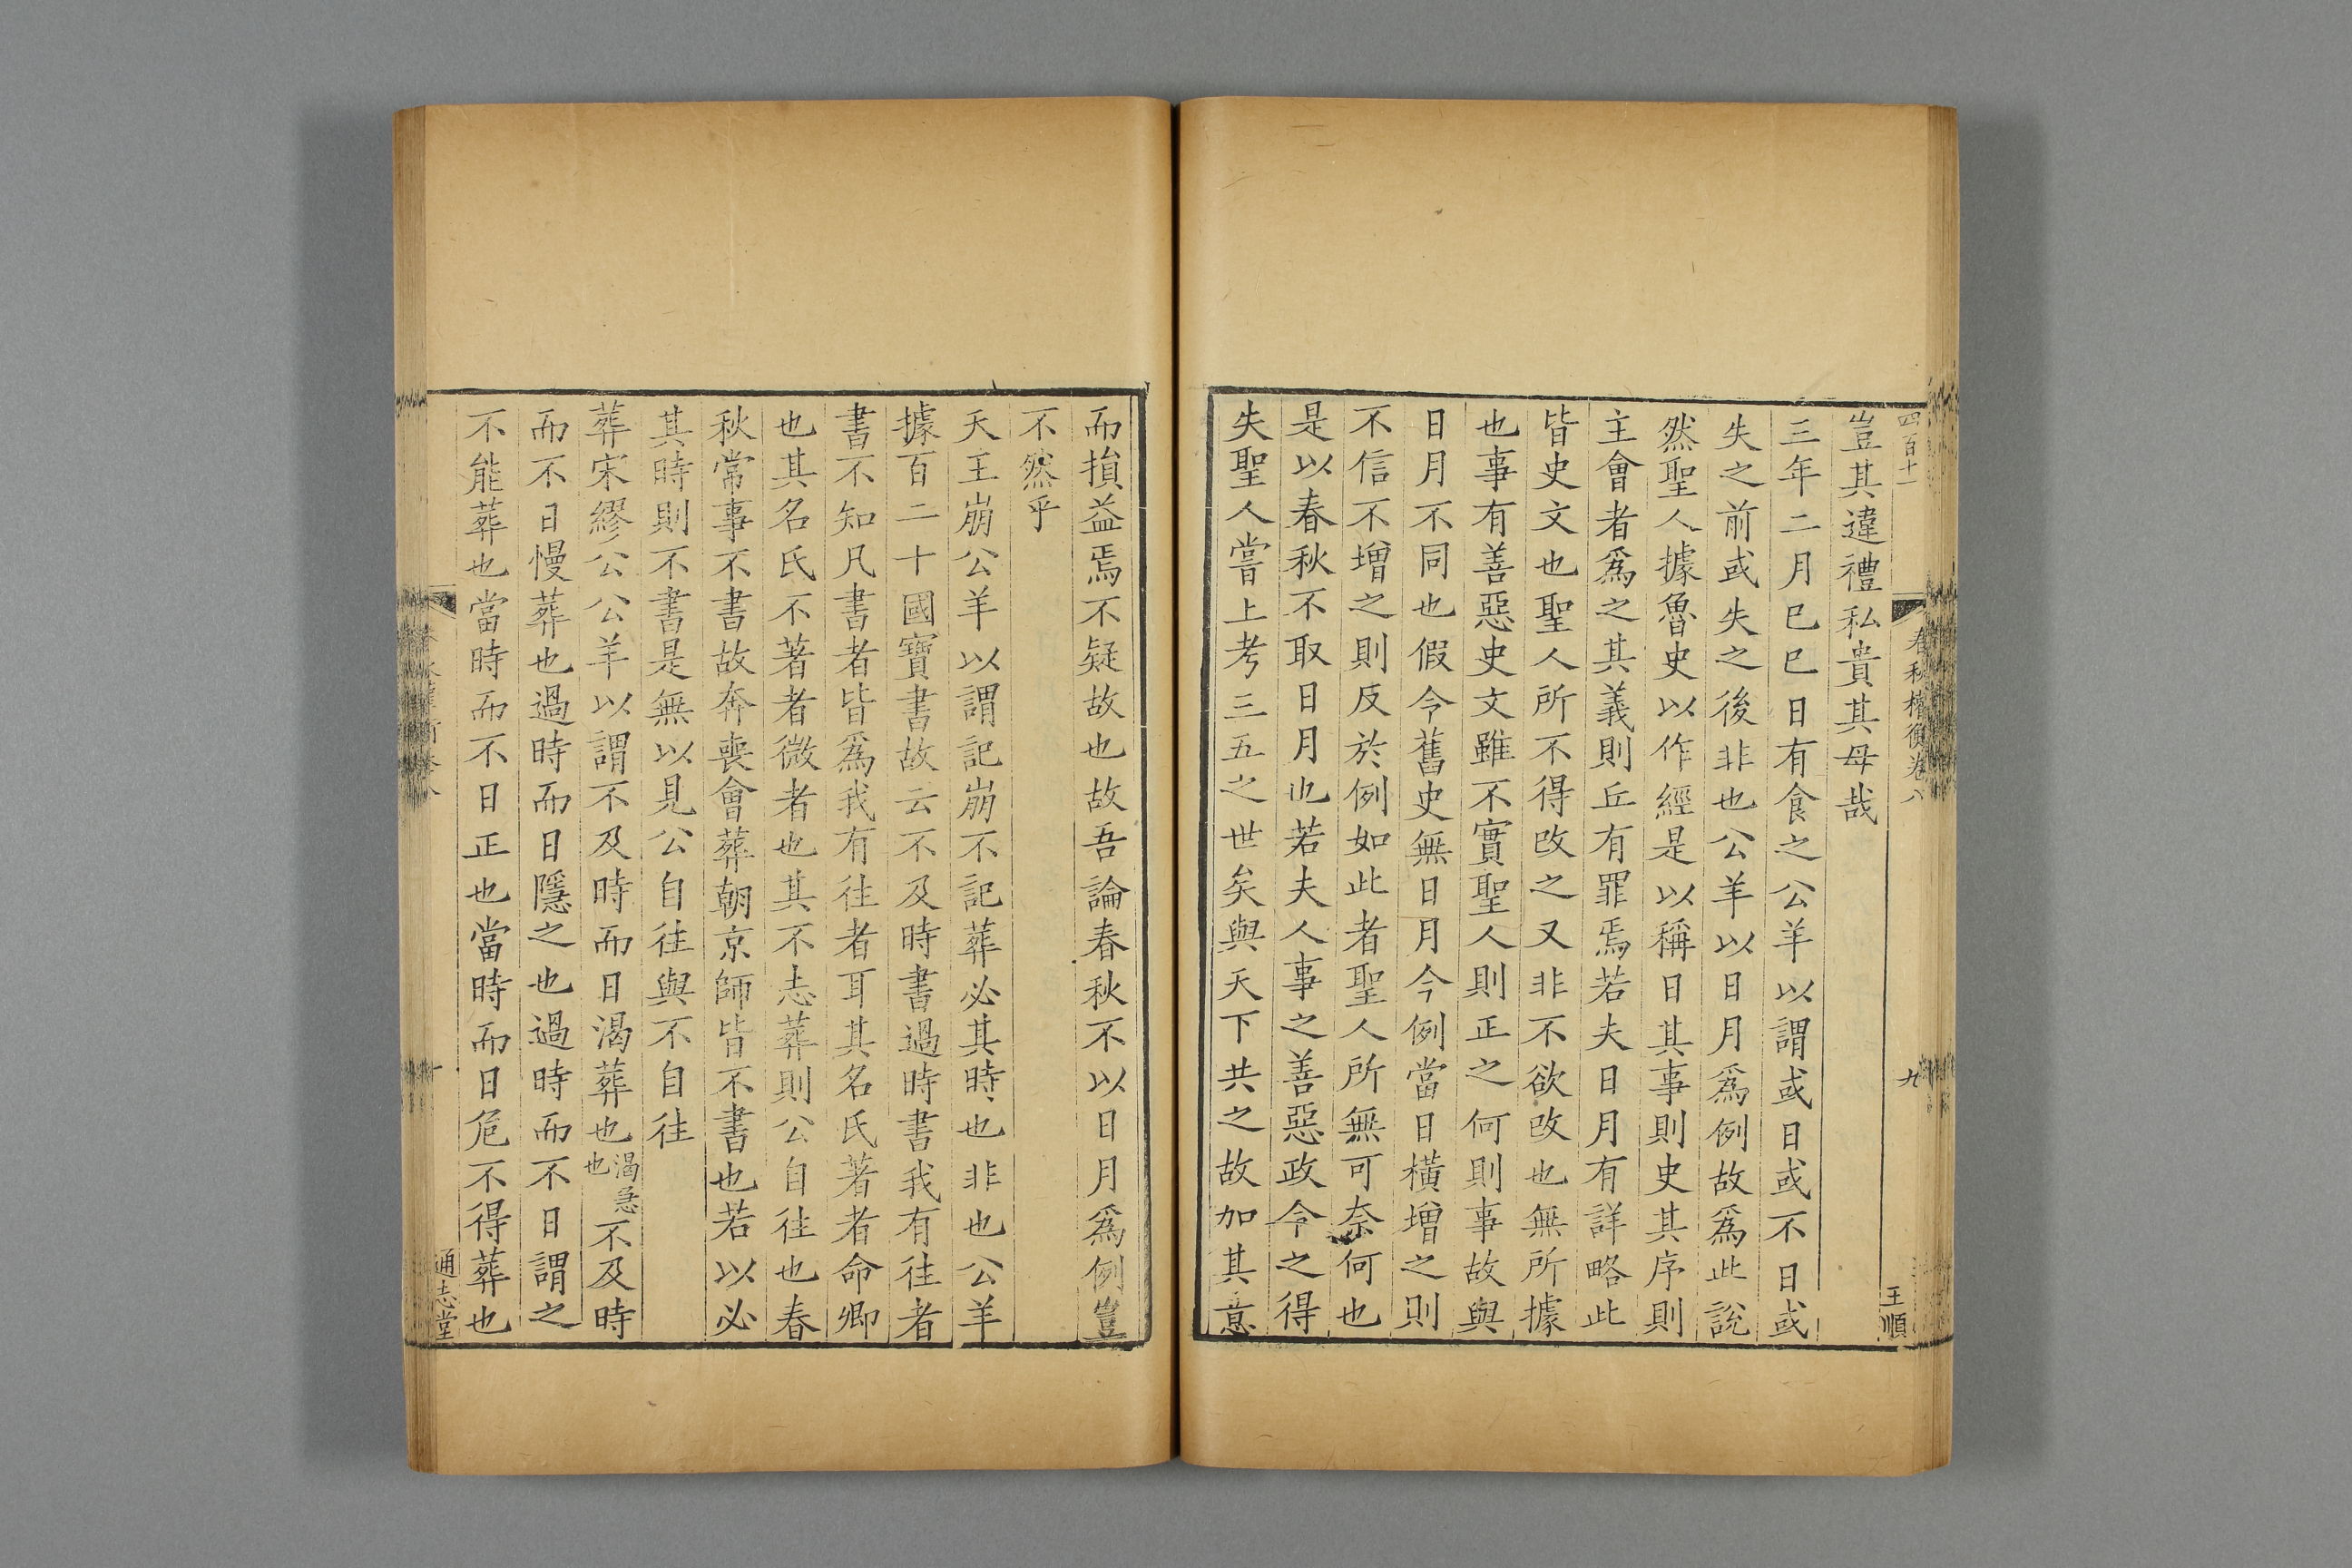 四百十一
春秋權衡卷八
九
王順
豈其違禮私貴其母哉
三年二月巳巳日有食之公羊以謂或日或不日或
失之前或失之後非也公羊以日月爲例故爲此說
然聖人據魯史以作經是以稱日其事則史其序則
主會者爲之其義則丘有罪焉若夫日月有詳略此
皆史文也聖人所不得改之又非不欲改也無所據
也事有善惡史文雖不實聖人則正之何則事故與
日月不同也假令舊史無日月今例當日橫增之則
不信不增之則反於例如此者聖人所無可奈何也
是以春秋不取日月也若夫人事之善惡政令之得
失聖人嘗上考三五之世矣與天下共之故加其意
而損益焉不疑故也故吾論春秋不以日月爲例豈
不然乎
天王崩公羊以謂記崩不記葬必其時也非也公羊
據百二十國寶書故云不及時書過時書我有往者
書不知凡書者皆爲我有往者耳其名氏著者命卿
也其名氏不著者微者也其不志葬則公自往也春
秋常事不書故奔喪會葬朝京師皆不書也若以必
其時則不書是無以見公自往與不自往
葬宋繆公公羊以謂不及時而日渴葬也渴急也不及時
而不日慢葬也過時而日隱之也過時而不日謂之
不能葬也當時而不日正也當時而日危不得葬也
通志堂